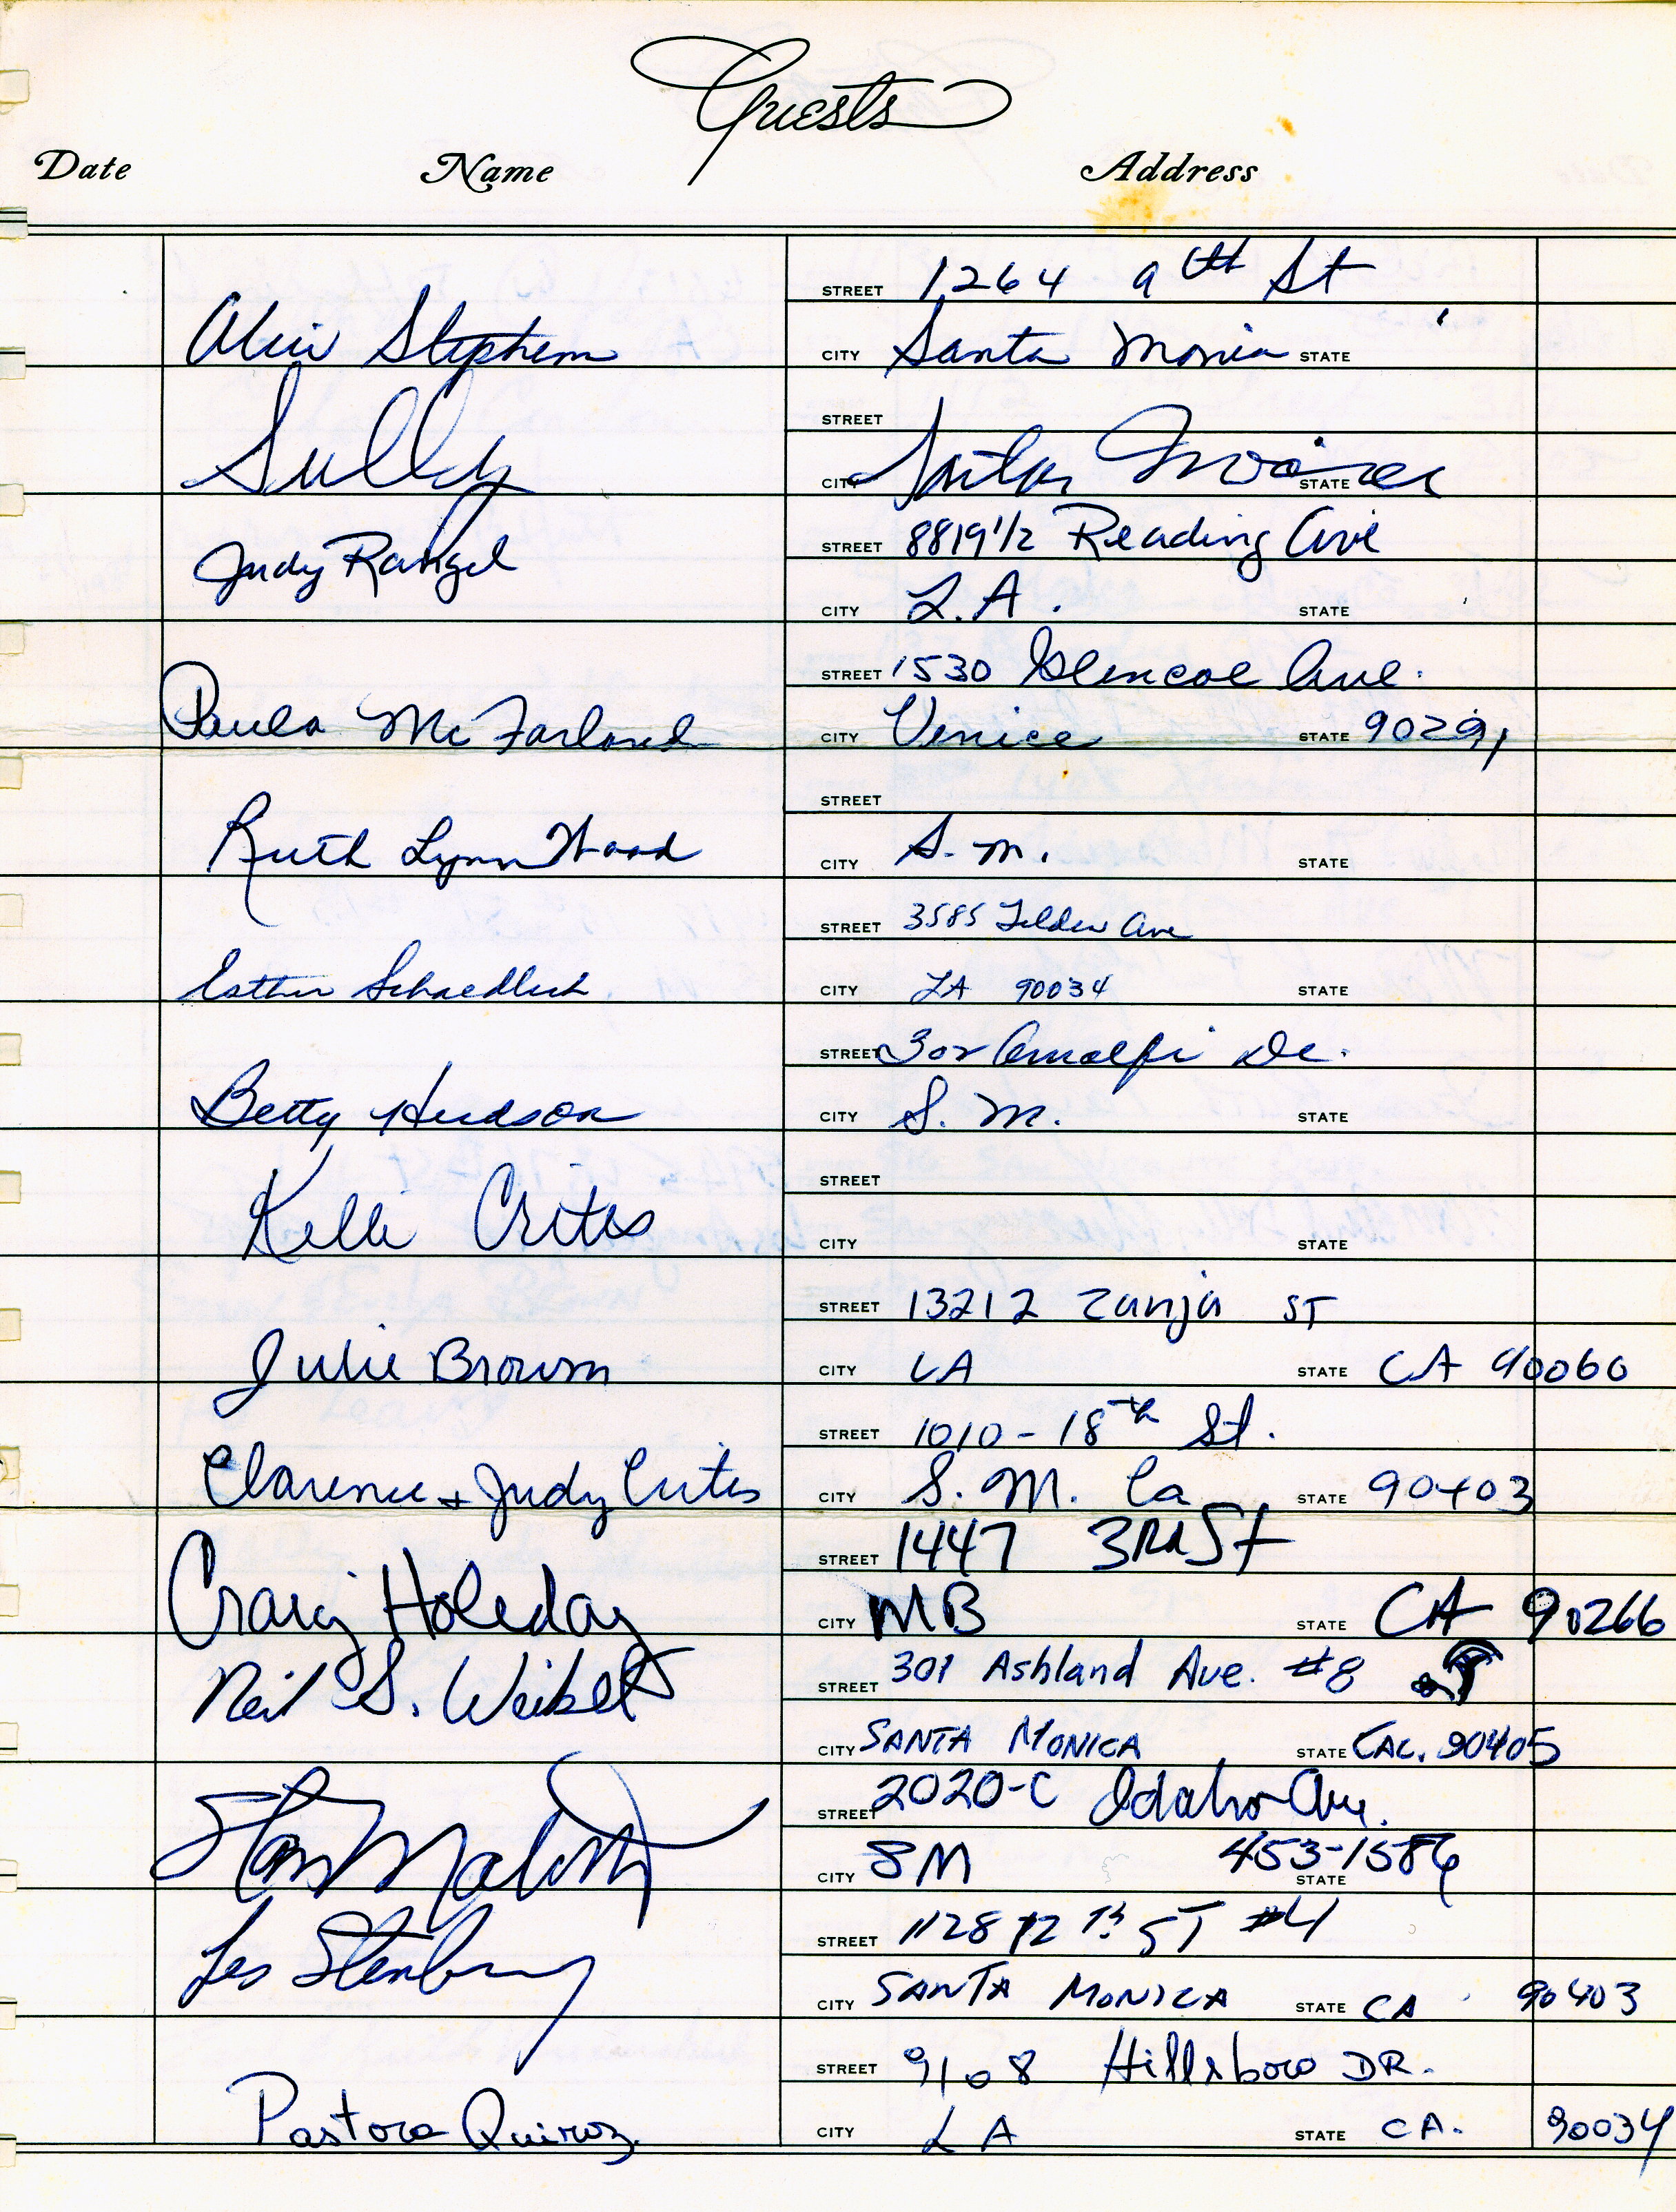 Guests
Date Name Address
STREET 1264 9th St
Alice Stephens CITY Santa Monica STATE
STREET
Sully CITY Santa Monica STATE
Judy Rangel STREET 8819 1/2 Reading Ave
CITY L.A. STATE
STREET 1530 Glencoe Ave.
Paula McFarland CITY Venice STATE 90291
STREET
Ruth Lynn Wood CITY S. M. STATE
STREET 3585 Tilden Ave
Esther Schaedlich CITY LA 90034 STATE
STREET 302 Amalfi Dr.
Betty Hudson CITY S. M. STATE
STREET
Kelle Crites CITY STATE
STREET 13212 Zanja ST
Julie Brown CITY LA STATE CA 90066
STREET 1010-18th St.
Clarence + Judy Crites CITY S. M. Ca STATE 90403
STREET 1447 3Rd St
Craig Holiday CITY MB STATE CA 90266
STREET 301 Ashland Ave. #8
Neil S. Weibel CITY SANTA MONICA STATE CAL. 90405
STREET 2020-C Idaho Ave.
Stan CITY SM 453-1586 STATE
STREET 1128 12 Th ST #4
Les CITY SANTA MONICA STATE CA 90403
STREET 9108 Hillsboro DR.
Pastora Quiroz CITY LA STATE CA. 90034